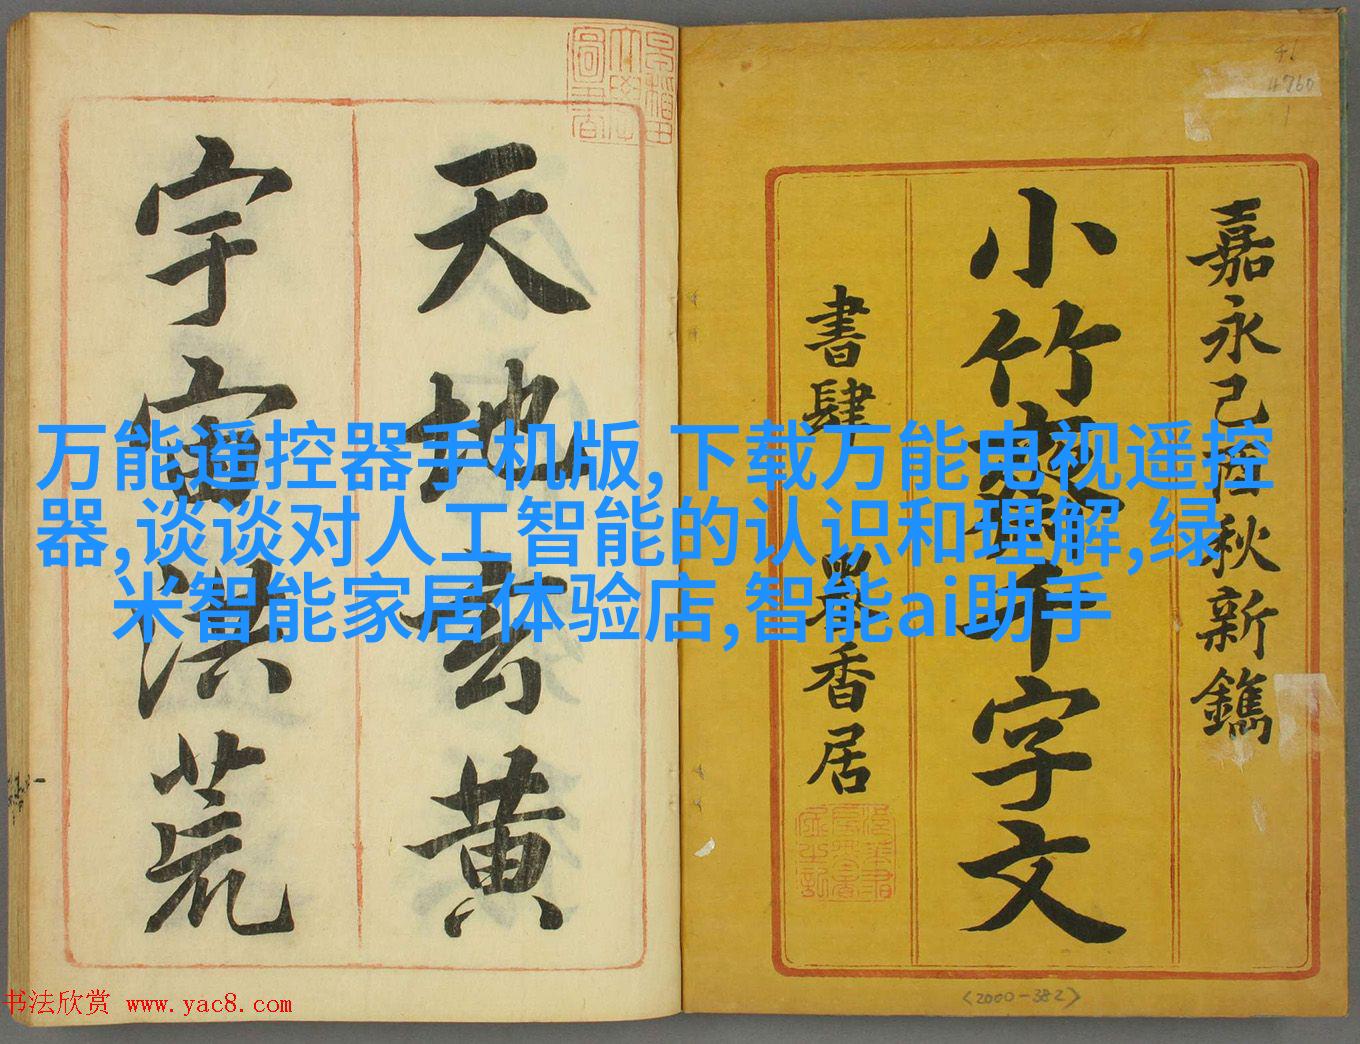 嘉永己酉秋新鐫
小竹千字文
書肆 香居
天地玄黃
宇宙洪荒
万能遥控器手机版,下载万能电视遥控
器,谈谈对人工智能的认识和理解,绿
米智能家居体验店,智能ai助手
4760
<2000-382>
书法欣赏 www.yac8.com